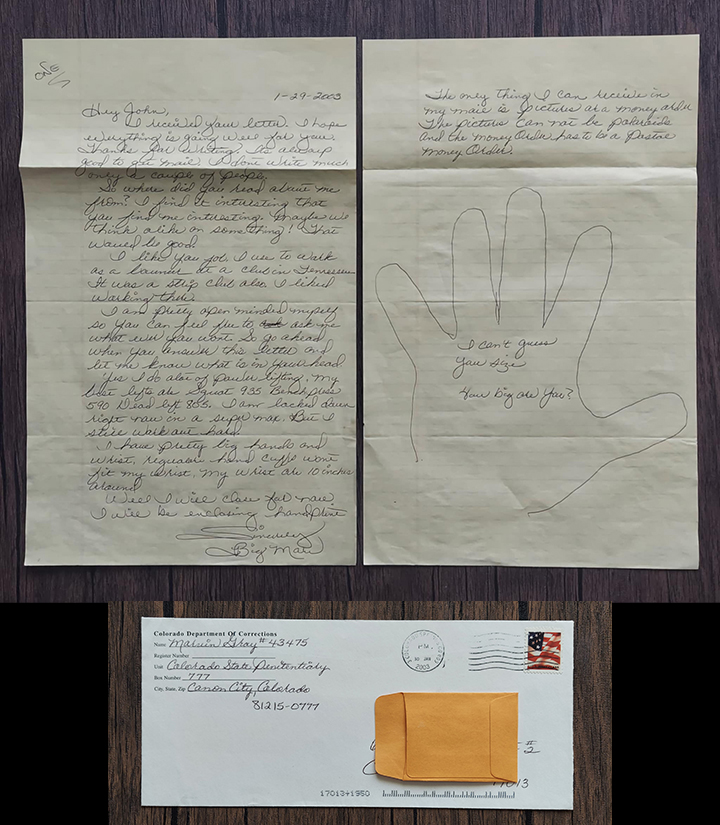 ONE
1-29-2003
Hey John,
I received your letter. I hope
everything is going well for you.
Thanks for writing. Its always
good to get mail. I dont write much
only a couple of people.
So where did you read about me
from? I find it interesting that
you find me interesting. Maybe we
think alike on something! That
would be good.
I like you job. I use to work
as a bouncer at a club in Tennessee
It was a strip club also. I liked
working there.
I am pretty open minded myself
so you can feel free to ask me
what ever you want. So go ahead
when you answer this letter and
let me know what is in your head
Yes I do alot of power lifting. My
best lifts are Squat 935 Bench press
590 Dead lift 805. I am locked down
right now in a super max. But I
still work out hard
I have pretty big hands and
wrist, regular hand cuffs wont
fit my wrist. My wrist are 10 inches
around
Well I will close for now
I will be enclosing handprint
Sincerely
Big Marv
The only thing I can receive in
my mail is pictures or a money order
The pictures can not be
And the money Order has to be a Postal
Money Order.
I can't guess
you size
How big are you?
Colorado Department Of Corrections
Name Marvin Gray # 43475
Register Number
Unit Colorado State Penitentiary
Box Number 777
City, State, Zip Canon City, Colorado
81215-0777
2003
# 2
17013
17013+1950